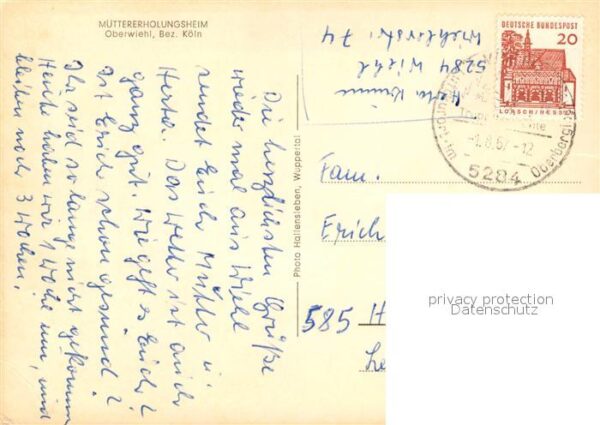 MÜTTERERHOLUNGSHEIM
Oberwiehl, Bez. Köln
Die herzlichsten Grüße
wieder mal aus Wiehl
sendet Euch Mutter u.
Herta. Das Wetter ist auch
ganz gut. Wie geht es Euch?
Ist Erich schon gesund?
Ihr seid so lang nicht gekommen
Heute haben wir 1 Woche um, und
bleiben noch 3 Wochen!
Photo Hallensleben, Wuppertal
Herta
5284 Wiehl
74
DEUTSCHE BUNDESPOST
20
LORSCH/HESSEN
-1.8.67-12
5284
Oberberg
Fam.
Erich
585 H
privacy protection
Datenschutz